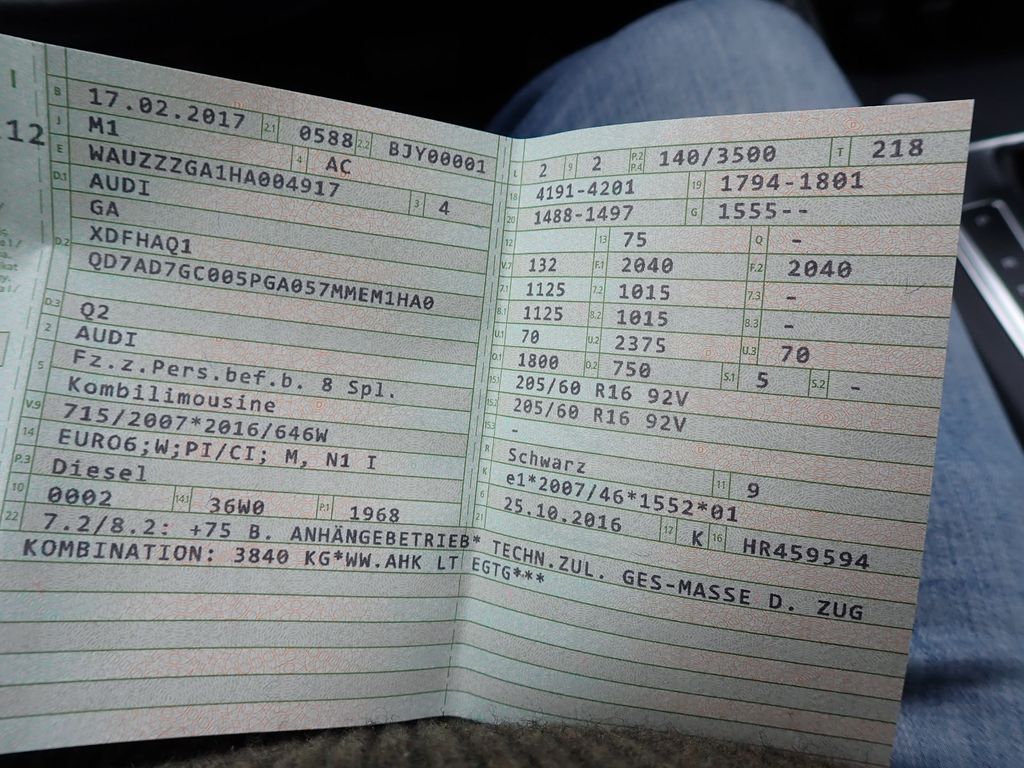 I
12
B 17.02.2017 2.1 0588 2.2 BJY00001
J M1 4 AC
E WAUZZZGA1HA004917 3 4
D.1 AUDI
GA
D.2 XDFHAQ1
QD7AD7GC005PGA057MMEM1HA0
D.3 Q2
2 AUDI
5 Fz.z.Pers.bef.b. 8 Spl.
Kombilimousine
V.9 715/2007*2016/646W
14 EURO6;W;PI/CI; M, N1 I
P.3 Diesel
10 0002 14.1 36W0 P.1 1968
L 2 9 2 P.2 P.4 140/3500 T 218
18 4191-4201 19 1794-1801
20 1488-1497 G 1555--
12 13 75 Q -
V.7 132 F.1 2040 F.2 2040
7.1 1125 7.2 1015 7.3 -
8.1 1125 8.2 1015 8.3 -
U.1 70 U.2 2375 U.3 70
O.1 1800 O.2 750 S.1 5 S.2 -
15.1 205/60 R16 92V
15.2 205/60 R16 92V
15.3 -
R Schwarz 11 9
K e1*2007/46*1552*01
6 25.10.2016 17 K 16 HR459594
22 7.2/8.2: +75 B. ANHÄNGEBETRIEB* 21 TECHN.ZUL. GES-MASSE D. ZUG
KOMBINATION: 3840 KG*WW.AHK LT EGTG***